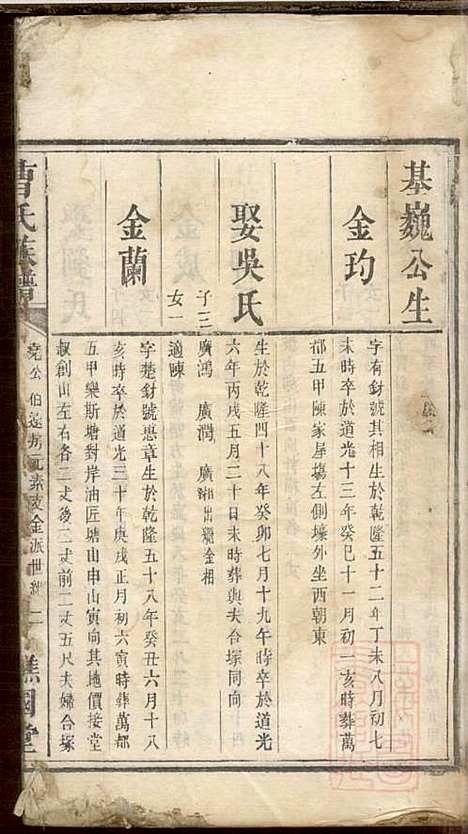 基巍公生
金玓
字有財號其相生於乾隆五十二年丁未八月初七
未時卒於道光十三年癸巳十一月初一亥時葬萬
都五甲陳家屋塲左側壕外坐西朝東
娶吳氏
生於乾隆四十八年癸卯七月十九午時卒於道光
六年丙戌五月二十日未時葬與夫合塚同向
子三 廣鴻 廣潤 廣 出繼金相
女一 適陳
金蘭
字楚財號惠章生於乾隆五十八年癸丑六月十八
亥時卒於道光三十年庚戌正月初六寅時葬萬都
五甲樂斯塘對岸油匠塘山申山寅向其地價接堂
叔創山左右各二丈後二丈前二丈五尺夫婦合塚
曹氏族譜
堯公伯達房元素支金派世 二
譙國堂